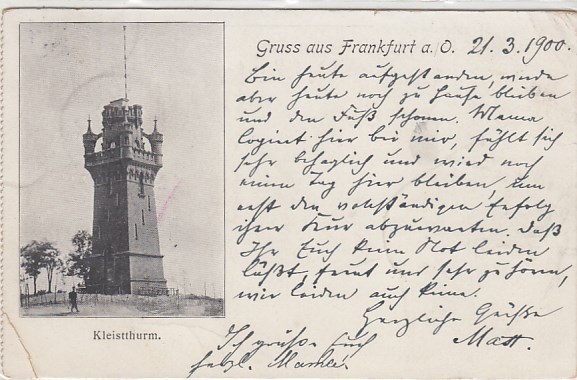 Gruss aus Frankfurt a. O. 21.3.1900.
Bin heute aufgestanden, werde
aber heute noch zu Hause bleiben
und den Fuß schonen. Mama
logiert hier bei mir, fühlt sich
sehr behaglich und wird noch
einen Tag hier bleiben, um
erst den vollständigen Erfolg
ihrer Kur abzuwarten. Daß
Ihr Euch keine Not leiden
läßt, freut uns sehr zu hören,
wir leiden auch keine.
Herzliche Grüße
Kleistthurm.
Ich grüße Euch
herzl.